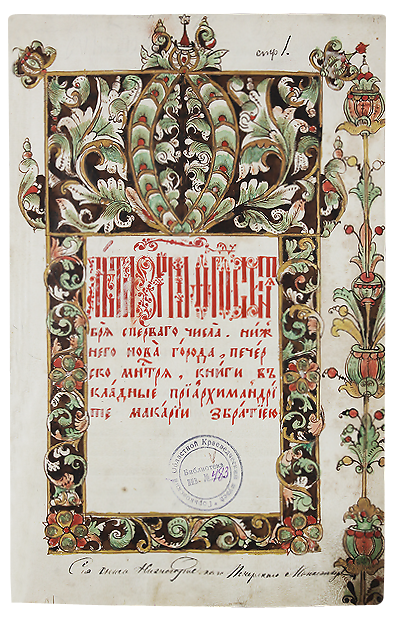 стр 1.
бря спер҄ваго числа. ниж҄
него нова города, печер҄
ско мн҃тря, книги въ
кладные прїархимандрі
те макарїи збратїею
Областной Краеведческий
Библиотека
Инв. №
Сія книга Нижегородскаго Печерскаго Монастыря